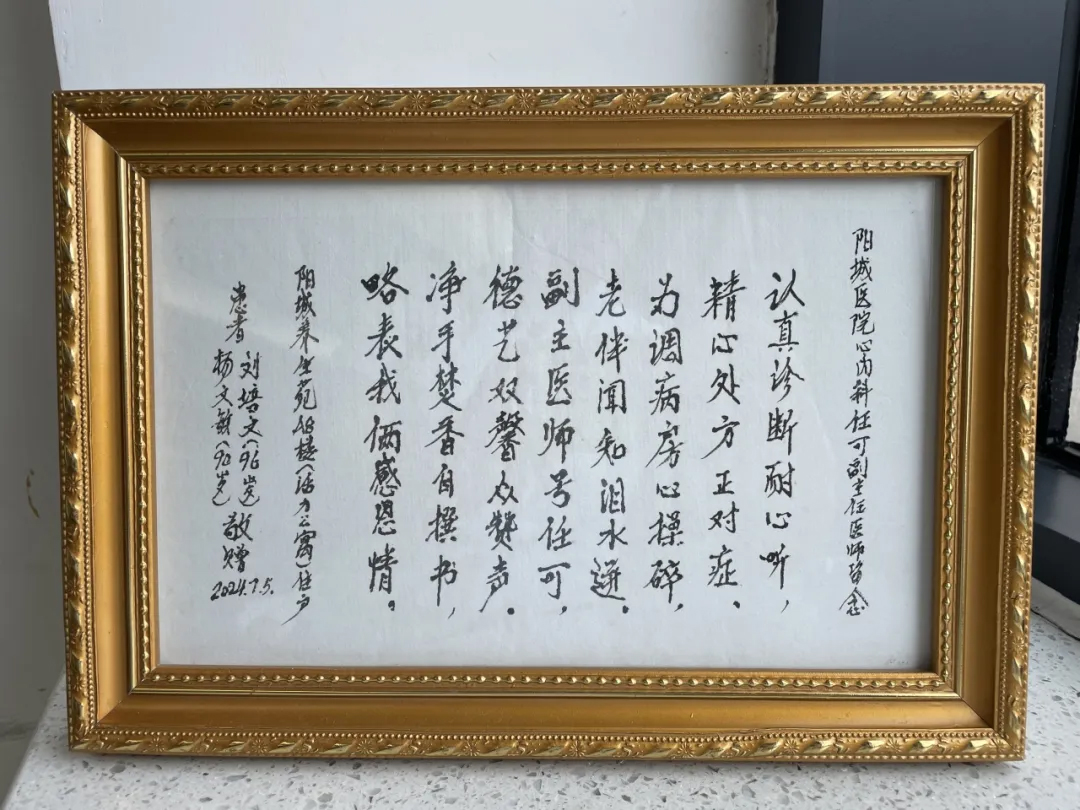 阳城医院心内科任可副主任医师留念
认真诊断耐心听，
精心处方正对症、
为调病房心操碎，
老伴闻知泪水迸。
副主医师号任可，
德艺双馨众赞声。
净手焚香自撰书，
略表我俩感恩情。
阳城养生苑B楼（活力公寓）住户
患者 刘培文（96岁）
杨文敏（90岁）
敬赠
2024.7.5.